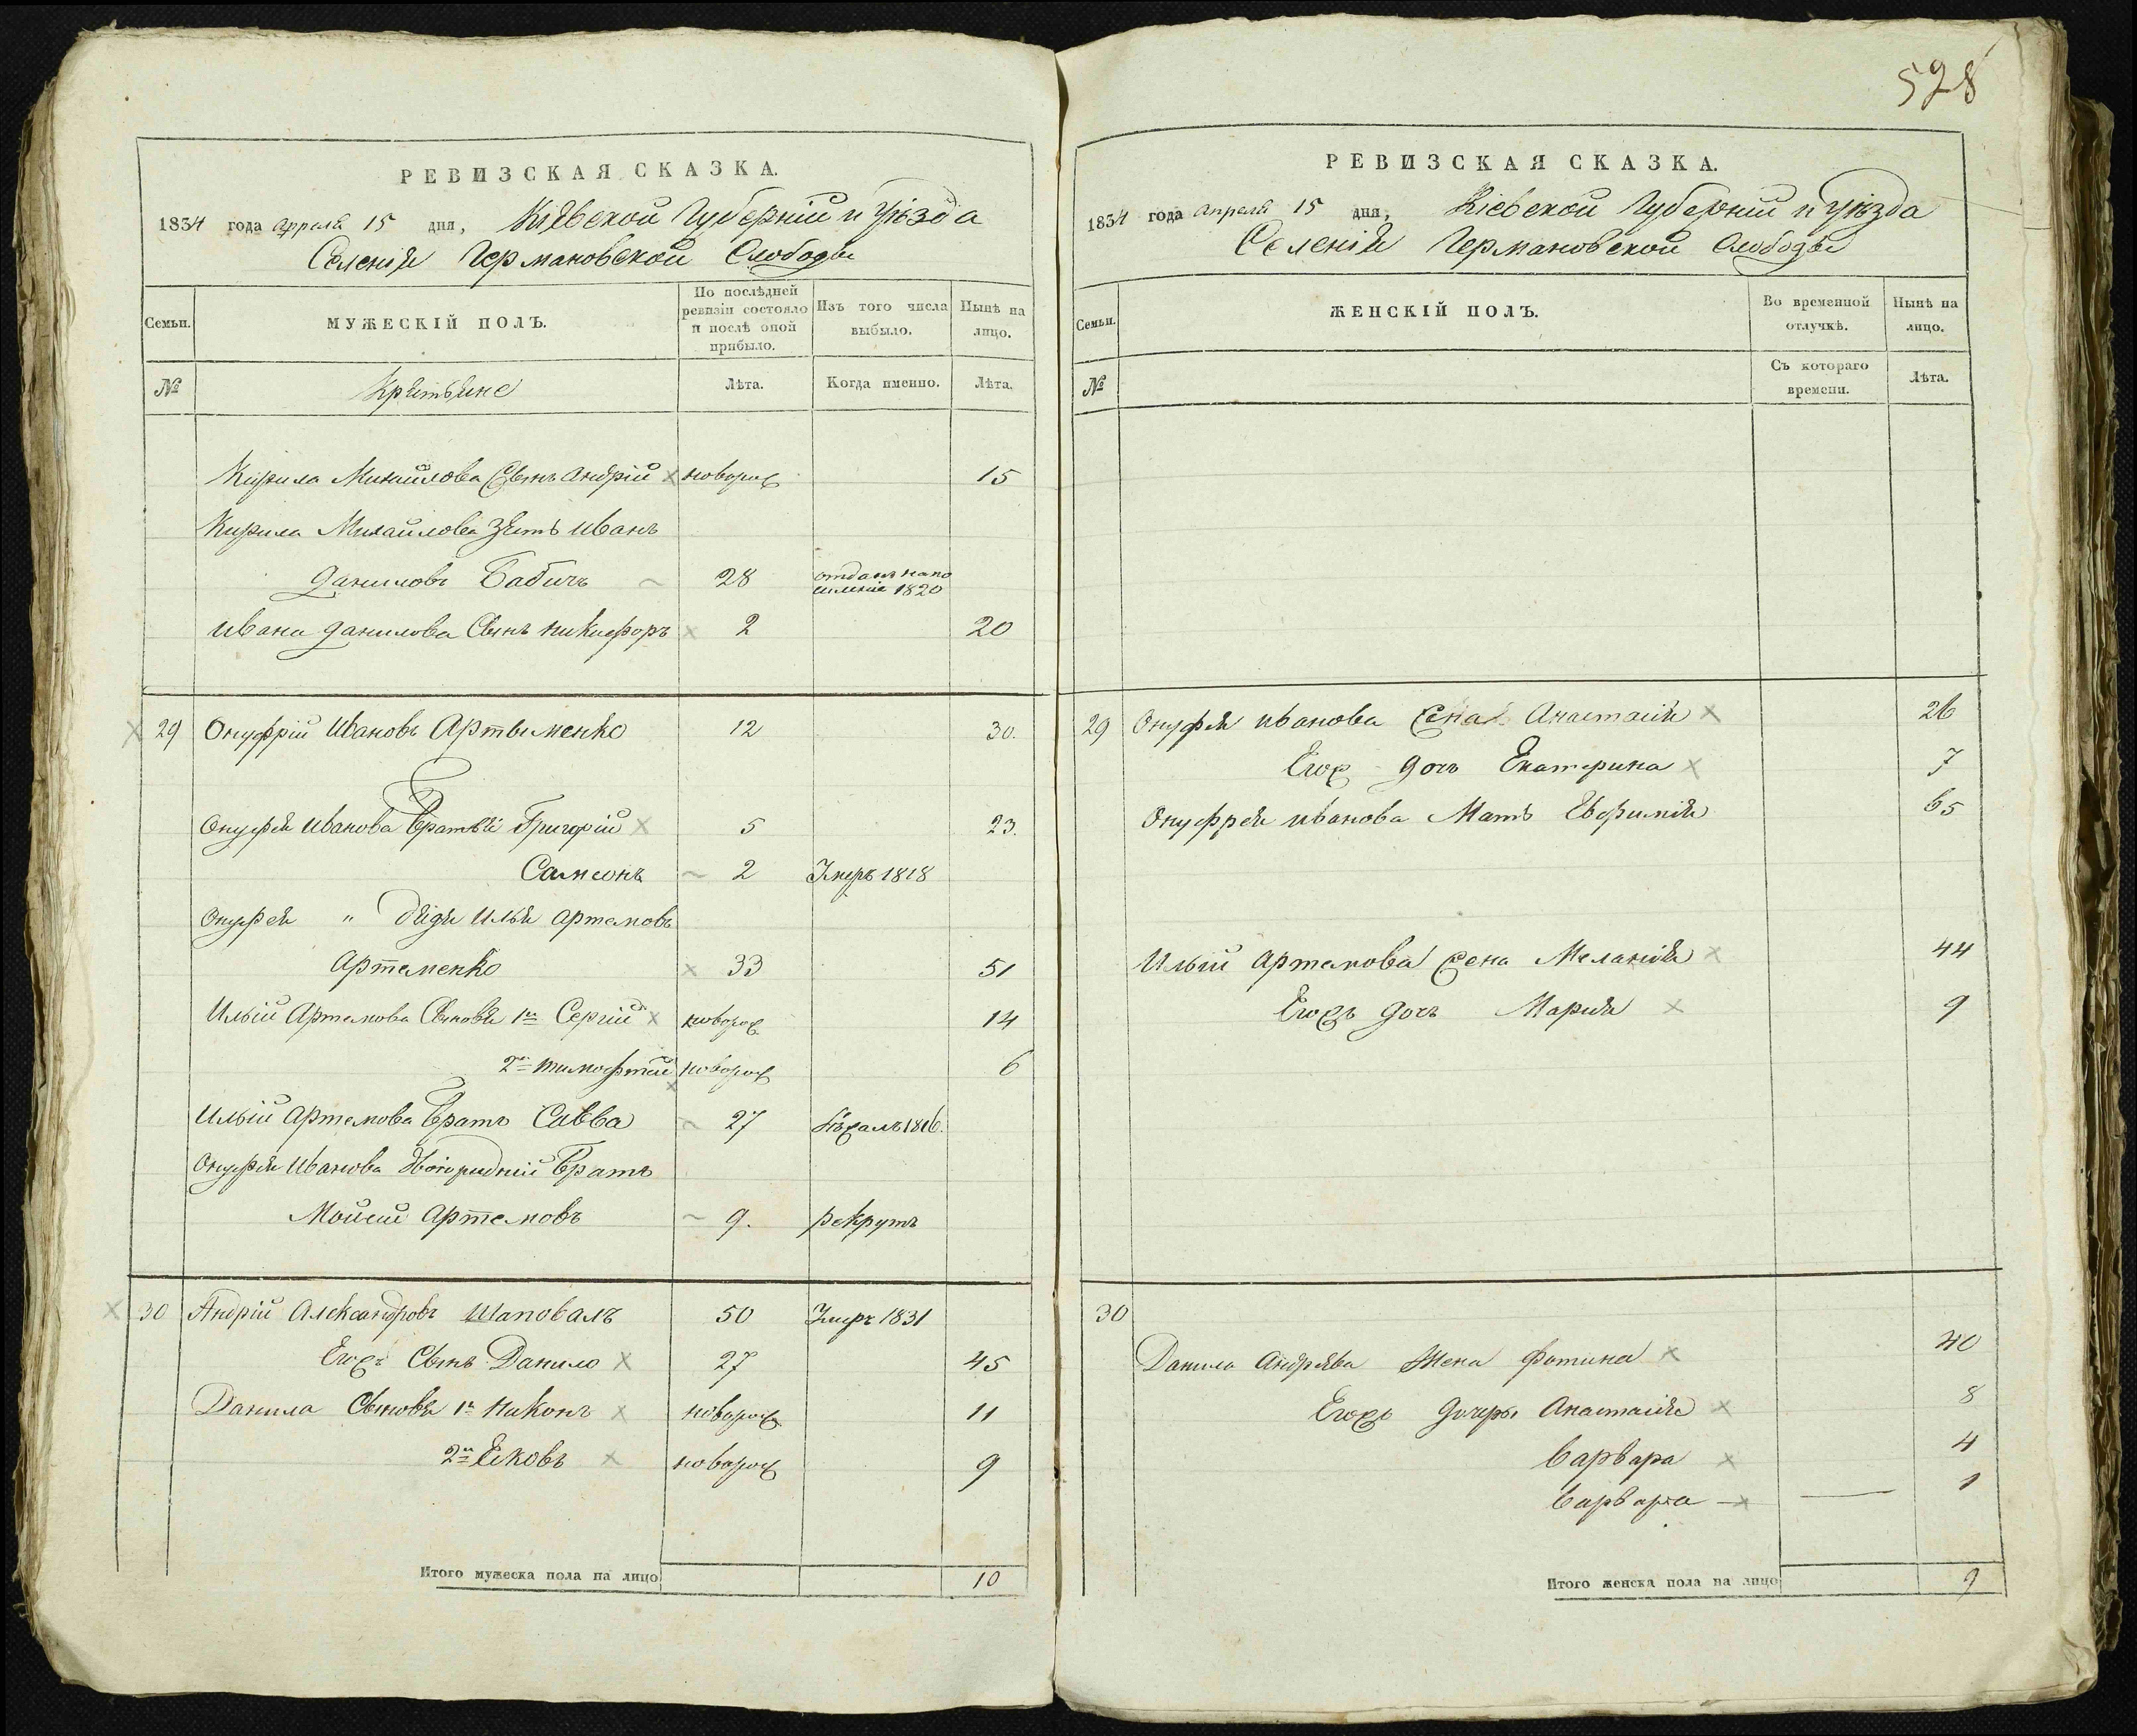 528
РЕВИЗСКАЯ СКАЗКА.
1834 года Апреля 15 дня, Кіевской Губерніи и Уѣзда
Селенія Германовской Слободы
Семьи.
МУЖЕСКІЙ ПОЛЪ.
По послѣдней ревизіи состояло и послѣ оной прибыло.
Изъ того числа выбыло.
Нынѣ на лицо.
№
Лѣта.
Когда именно.
Лѣта.
Кирила Михайлова Сынъ Андрій новорож 15
Кирила Михайлова Зять Иванъ
Даниловъ Бабичъ 28 отданъ на по
селеніе 1820
Ивана Данилова Сынъ Никифоръ 2 20
29 Онуфрій Ивановъ Артеменко 12 30.
Онуфрія Иванова Братья Григорій 5 23.
Самсонъ 2 Умеръ 1818
Онуфрея " Дядя Илья Артемовъ
Артеменко 33 51
Ильи Артемова Сыновья 1й Сергій новорож 14
2й Тимофтей новорож 6
Ильи Артемова Братъ Савва 27 бѣжалъ 1816.
Онуфрія Иванова двоюридній Братъ
Мойсій Артемовъ 9. рекрутъ
30 Андрій Александровъ Шаповалъ 50 Умеръ 1831
Егожъ Сынъ Данило 27 45
Данила Сыновья 1й Никонъ новорож 11
2й Яковъ новорож 9
Итого мужеска пола на лицо 10
РЕВИЗСКАЯ СКАЗКА.
1834 года Апреля 15 дня, Кіевской Губерніи и Уѣзда
Селенія Германовской Слободы
Семьи.
ЖЕНСКІЙ ПОЛЪ.
Во временной отлучкѣ.
Нынѣ на лицо.
№
Съ котораго времени.
Лѣта.
29 Онуфрія Иванова Жена Анастасія 26
Егож Дочъ Екатерина 7
Онуфрея Иванова Мать Евфимія 65
Ильи Артемова Жена Меланія 44
Егожъ Дочъ Марія 9
30
Данила Андрѣева Жена Фотина 40
Егожъ Дочеры Анастасія 8
Варвара 4
Варвара 1
Итого женска пола на лицо 9